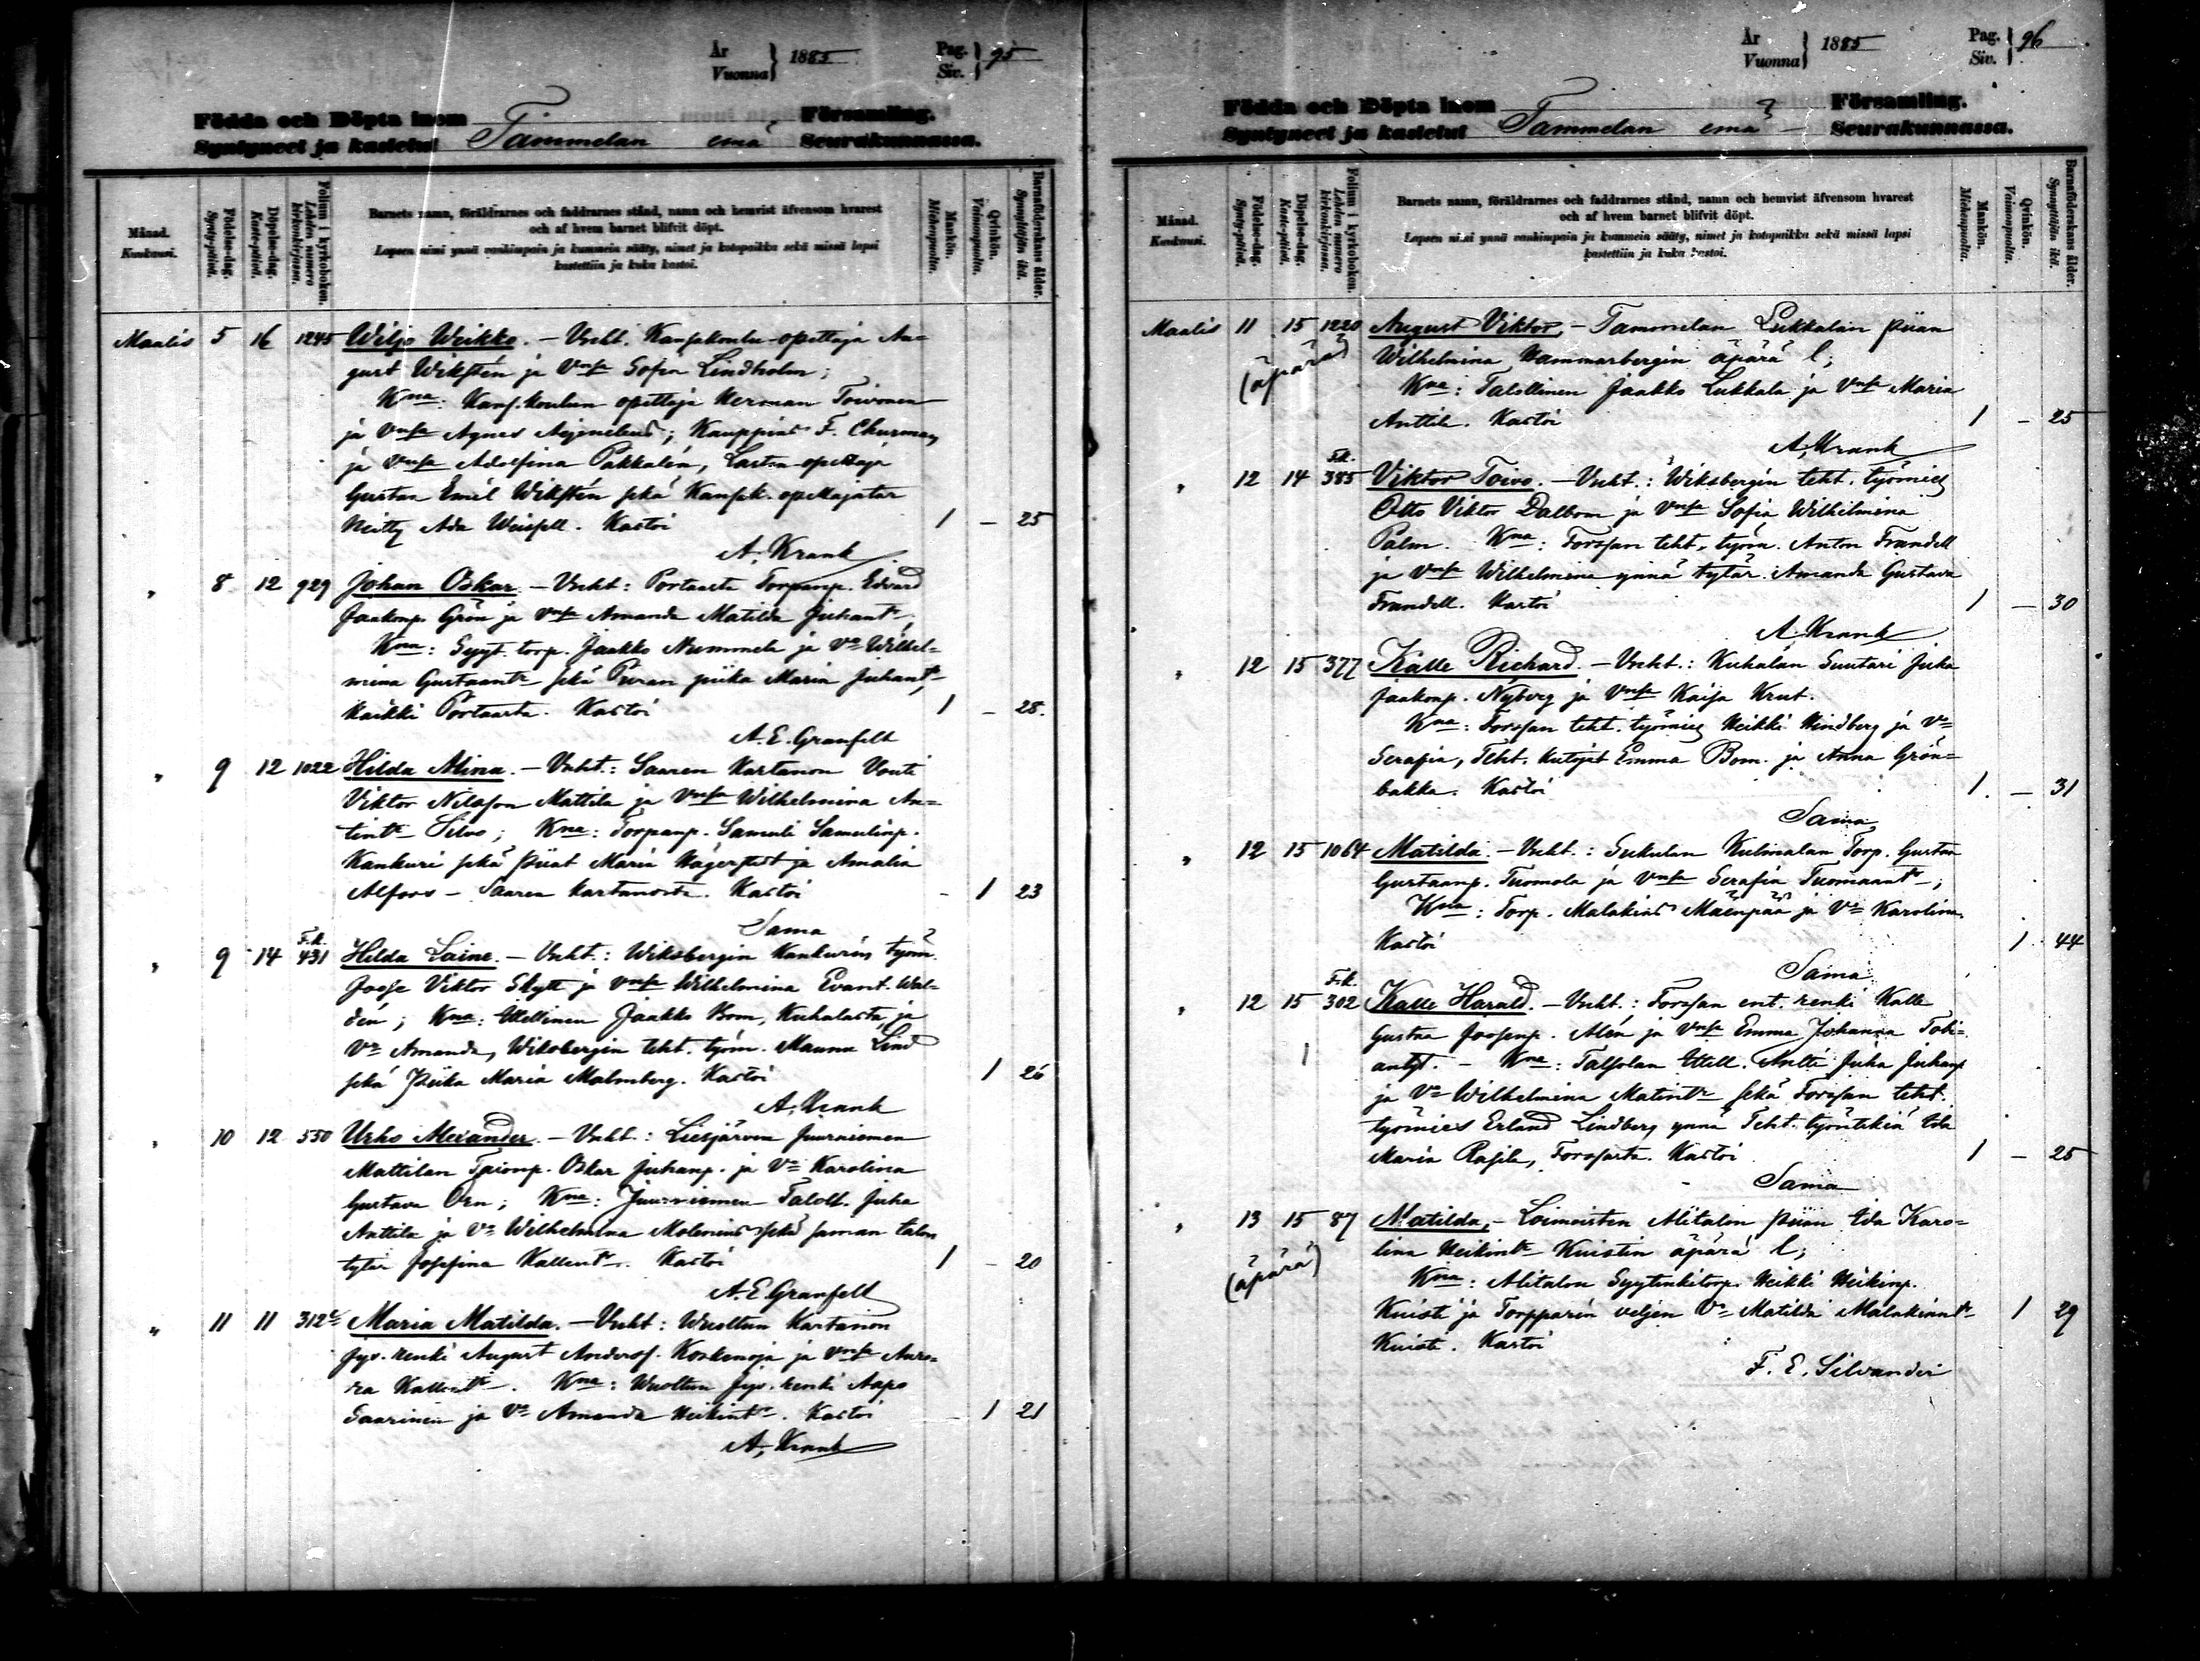 År
Vuonna } 1885 Pag.
Siv. } 95
Födda och Döpta inom Församling.
Syntyneet ja kastetut Tammelan emä Seurakunnassa.
Månad.
Kuukausi.
Födelse-dag.
Synty-päivä.
Döpelse-dag.
Kaste-päivä.
Folium i kyrkoboken.
Lehden numero kirkonkirjassa.
Barnets namn, föräldrarnes och faddrarnes stånd, namn och hemvist äfvensom hvarest
och af hvem barnet blifvit döpt.
Lapsen nimi ynnä vanhimpain ja kummein sääty, nimet ja kotopaikka sekä missä lapsi
kastettiin ja kuka kastoi.
Mankön.
Miehenpuolia.
Qvinkön.
Vaimonpuolia.
Barnaföderskans ålder.
Synnyttäjän ikä.
Maalis 5 16 1245 Wiljo Weikko. – Vnht. Kansakoulu-opettaja Au-
gust Wikstén ja Vmsa Sofia Lindholm;
Kna: Kans.koulun opettaja Herman Toivonen
ja Vmsa Agnes ; Kauppias F. Churman
ja Vmsa Adolfina Pakkalén, Lasten-opettaja
Gustaa Emil Wikstén sekä Kansak. opettajatar
Neiti Ada . Kastoi 1 – 25
A. Krank
" 8 12 929 Johan Oskar – Vnht: Portaasta Torpanp. Edvard
Jaakonp. Grön ja Vmsa Amanda Matilda Juhantr,
Kna: Syyt. torp. Jaakko Nummela ja Va Wilhel-
mina Gustaantr sekä Puran piika Maria Juhantr,
kaikki Portaasta. Kastoi 1 – 28.
A. E. Granfelt
" 9 12 1022 Hilda Alina. – Vnht.: Saaren Kartanon Vouti
Viktor Nilsson Mattila ja Vmsa Wilhelmina An-
tintr Silvo; Kna: Torpanp. Samuli Samulinp.
Kankuri sekä piiat Maria Hägerstedt ja Amalia
Alfors – Saaren kartanosta. Kastoi – 1 23
Sama
" 9 14 F.k.
431 Hilda Laine. – Vnht.: Wiksbergin Kankurin työm.
Josse Viktor Skytt ja Vmsa Wilhelmina Evant. Wal-
dén; Kna: Itsellinen Jaakko Bom, Kuhalasta, ja
Va Amanda, Wiksbergin teht. työm. Manna Lind
sekä piika Maria Malmberg. Kastoi 1 26
A. Krank
" 10 12 550 Urho Alexander. – Vnht.: Liesjärven Juurniemen
Mattilan Oskar Juhanp. ja Va Karolina
Gustava Orn; Kna: Juurniemen Taloll. Juha
Anttila ja Va Wilhelmina sekä saman talon
tytär Josefina Kallentr. Kastoi 1 – 20
A. E. Granfelt
" 11 11 312 Maria Matilda. – Vnht: Wuoltun Kartanon
renki August Anderss. Koskenoja ja Vmsa Auro-
ra Kallentr. Kna: Wuoltun renki Aapo
Saarinen ja Va Amanda Heikintr. Kastoi – 1 21
A. Krank
År
Vuonna } 1885 Pag.
Siv. } 96
Födda och Döpta inom Församling.
Syntyneet ja kastetut Tammelan emä Seurakunnassa.
Månad.
Kuukausi.
Födelse-dag.
Synty-päivä.
Döpelse-dag.
Kaste-päivä.
Folium i kyrkoboken.
Lehden numero kirkonkirjassa.
Barnets namn, föräldrarnes och faddrarnes stånd, namn och hemvist äfvensom hvarest
och af hvem barnet blifvit döpt.
Lapsen nimi ynnä vanhimpain ja kummein sääty, nimet ja kotopaikka sekä missä lapsi
kastettiin ja kuka kastoi.
Mankön.
Miehenpuolia.
Qvinkön.
Vaimonpuolia.
Barnaföderskans ålder.
Synnyttäjän ikä.
Maalis 11 15 1220 August Viktor, – Tammelan Lukkalan piian
(äpärä) Wilhelmina Hammarbergin äpärä l;
Kna: Talollinen Jaakko Lukkala ja Vmsa Maria
Anttila. Kastoi 1 – 25
A. Krank
" 12 14 F.k.
385 Viktor Toivo. – Vnht.: Wiksbergin teht. työmies
Otto Viktor Dalbom ja Vmsa Sofia Wilhelmina
Palm. Kna: Forssan teht. työm. Anton Frandell
ja Vmsa Wilhelmina ynnä tytär Amanda Gustava
Frandell. Kastoi 1 – 30
A. Krank
" 12 15 377 Kalle Richard. – Vnht.: Kuhalan Suutari Juha
Jaakonp. Nyberg ja Vmsa Kaisa Krut.
Kna: Forssan teht. työmies Heikki Hindberg ja Va
Serafia, Teht. kutojat Emma Bom. ja Anna Grön-
bakka. Kastoi 1. – 31
Sama
" 12 15 1064 Matilda. – Vnht.: Sukulan Kulmalan Torp. Gustaa
Gustaanp. Tuomola ja Vmsa Serafia Tuomaantr;
Kna: Torp. Malakias Mäenpää ja Va Karolina
Kastoi 1 44
Sama
" 12 15 F.k.
302 Kalle Harald. – Vnht.: Forssan ent. renki Kalle
Gustaa Joosenp. Alén ja Vmsa Emma Johanna Tobi-
antyt. – Kna: Talsolan Itsell. Antti Juha Juhanp
ja Va Wilhelmina Matintr sekä Forssan teht.
työmies Erland Lindberg ynnä Teht. työntekiä Ida
Maria Rajila, Forssasta. Kastoi 1 – 25
Sama
" 13 15 87 Matilda, – Loimaisten Alitalon piian Ida Karo-
(äpärä) lina Heikintr Kuistin äpärä l;
Kna: Alitalon Syytinkitorp. Heikki Heikinp.
Kuisti ja Torpparin veljen Va Matilda Malakiantr
Kuisti. Kastoi 1 29
F. E. Silvander